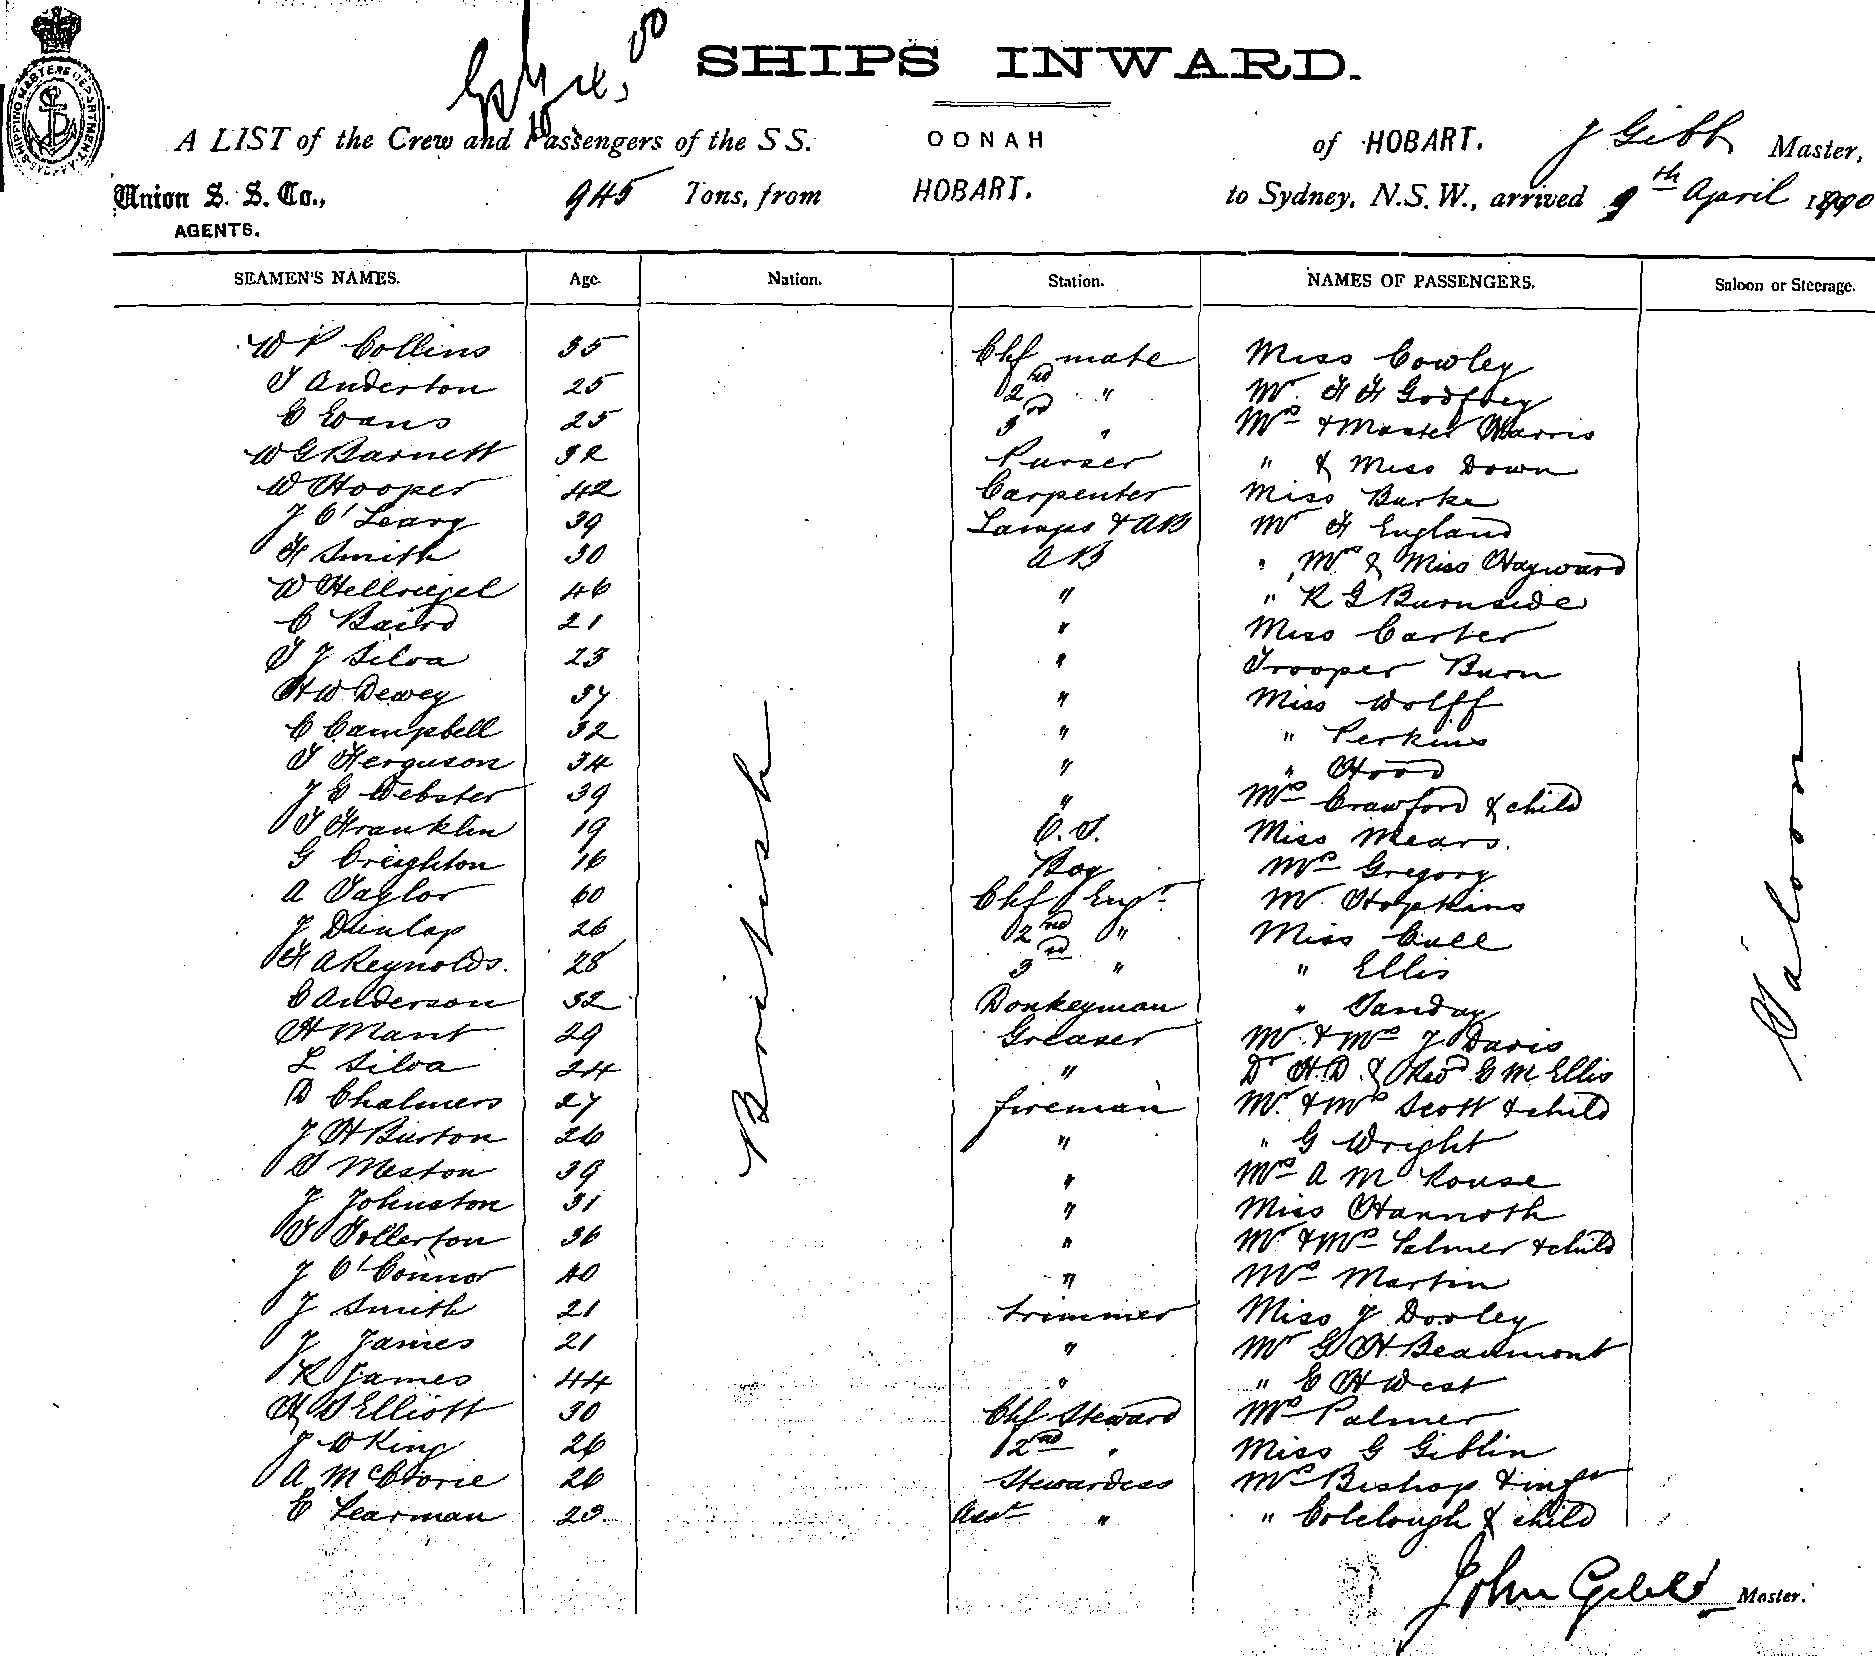 SHIPS INWARD.
A LIST of the Crew and Passengers of the S S. OONAH of HOBART. J Gibb Master,
Union S. S. Co., 945 Tons, from HOBART. to Sydney, N.S.W., arrived 9th April 1900
AGENTS.
SEAMEN'S NAMES. Age. Nation. Station. NAMES OF PASSENGERS. Saloon or Steerage.
British
Saloon
W P Collins 35 Chf mate Miss Cowley
T Anderton 25 2nd " Mr F F Godfrey
E Evans 25 3rd " Mrs & Master Harris
W G Barnett 32 Purser " & Miss Down
W Hooper 42 Carpenter Miss Burke
J O'Leary 39 Lamps & AB Mr F England
F Smith 30 AB " Mrs & Miss Hayward
W Hellriegel 46 " " R G Burnside
C Baird 21 " Miss Carter
T J Silva 23 " Trooper Burn
H W Dewey 37 " Miss Wolff
C Campbell 32 " " Perkins
T Ferguson 34 " " Hood
J C Webster 39 " Mrs Crawford & child
T Franklin 19 O.S. Miss Mears.
G Creighton 16 Boy Mrs Gregory
A Taylor 60 Chf Engr. Mr Hopkins
J Dunlap 26 2nd " Miss Cull
F A Reynolds. 28 3rd " " Ellis
C Anderson 32 Donkeyman " Sanday
H Mant 29 Greaser Mr & Mrs J Davis
L Silva 24 " Dr H.D. & Revd C M Ellis
D Chalmers 27 fireman Mr. & Mrs Scott & child
J H Burton 26 " " G Wright
T Meston 39 " Mrs A M Rouse
J Johnston 31 " Miss Hannoth
T Tollerton 36 " Mr & Mrs Palmer & child
J O'Connor 40 " Mrs Martin
J Smith 21 trimmer Miss J Dooley
J James 21 " Mr G H Beaumont
R James 44 " " E H West
H S Elliott 30 Chf Steward Mrs Palmer
J W King 26 2nd " Miss G Giblin
A McCrorie 26 Stewardess Mrs Bishop & inft
E Learman 23 Asst " " Colclough & child
John Gibb Master.